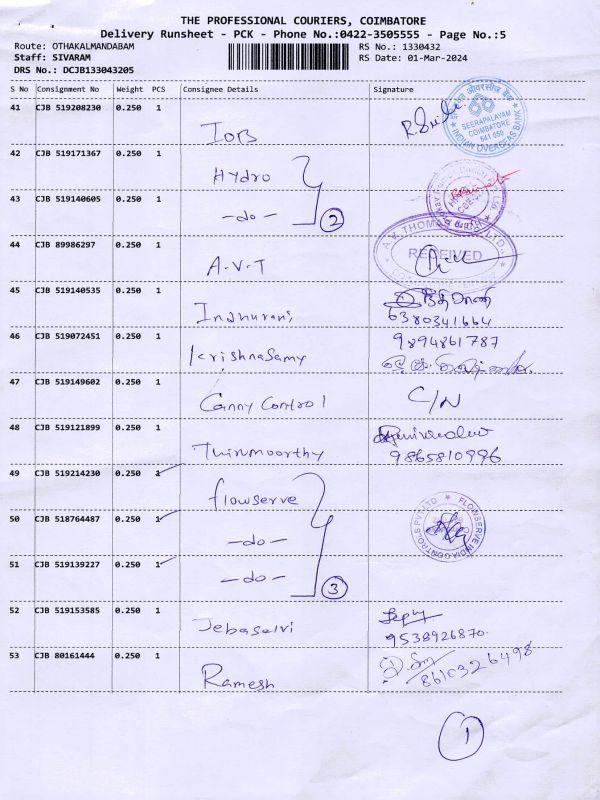 THE PROFESSIONAL COURIERS, COIMBATORE
Delivery Runsheet - PCK - Phone No.:0422-3505555 - Page No.:5
Route: OTHAKALMANDABAM RS No.: 1330432
Staff: SIVARAM RS Date: 01-Mar-2024
DRS No.: DCJB133043205
S No Consignment No Weight PCS Consignee Details Signature
41 CJB 519208230 0.250 1 IOB
INDIAN OVERSEAS BANK SEERAPALAYAM COIMBATORE 641 050
42 CJB 519171367 0.250 1 Hydro
43 CJB 519140605 0.250 1 -do- 2
44 CJB 89986297 0.250 1 A.V.T
A.V. THOMAS RECEIVED
45 CJB 519140535 0.250 1 Indhurani 6380341664
46 CJB 519072451 0.250 1 Krishnasamy 9894861787
47 CJB 519149602 0.250 1 Canny Control C/N
48 CJB 519121899 0.250 1 Thirumoorthy 9865810996
49 CJB 519214230 0.250 1 flowserve
50 CJB 518764487 0.250 1 -do-
FLOWSERVE INDIA CONTROLS PVT. LTD
51 CJB 519139227 0.250 1 -do- 3
52 CJB 519153585 0.250 1 Jebaselvi 9538926870
53 CJB 80161444 0.250 1 Ramesh 8610326498
1